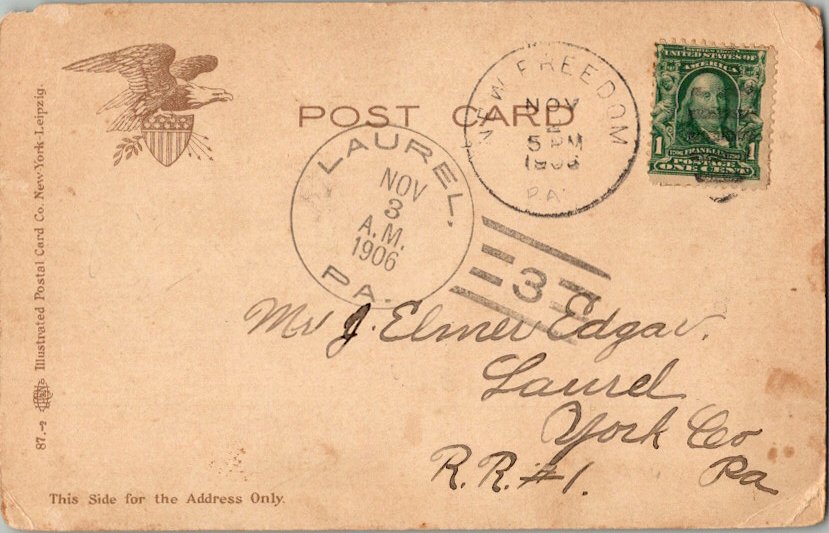 POST CARD
NEW FREEDOM
NOV
5 PM
1906
PA.
UNITED STATES OF
AMERICA
1 FRANKLIN 1
POSTAGE
ONE CENT
LAUREL,
NOV
3
A.M.
1906
PA.
3
Mr J. Elmer Edgar.
Laurel
York Co
R.R. #1. Pa
87.-2 Illustrated Postal Card Co. New York-Leipzig.
This Side for the Address Only.